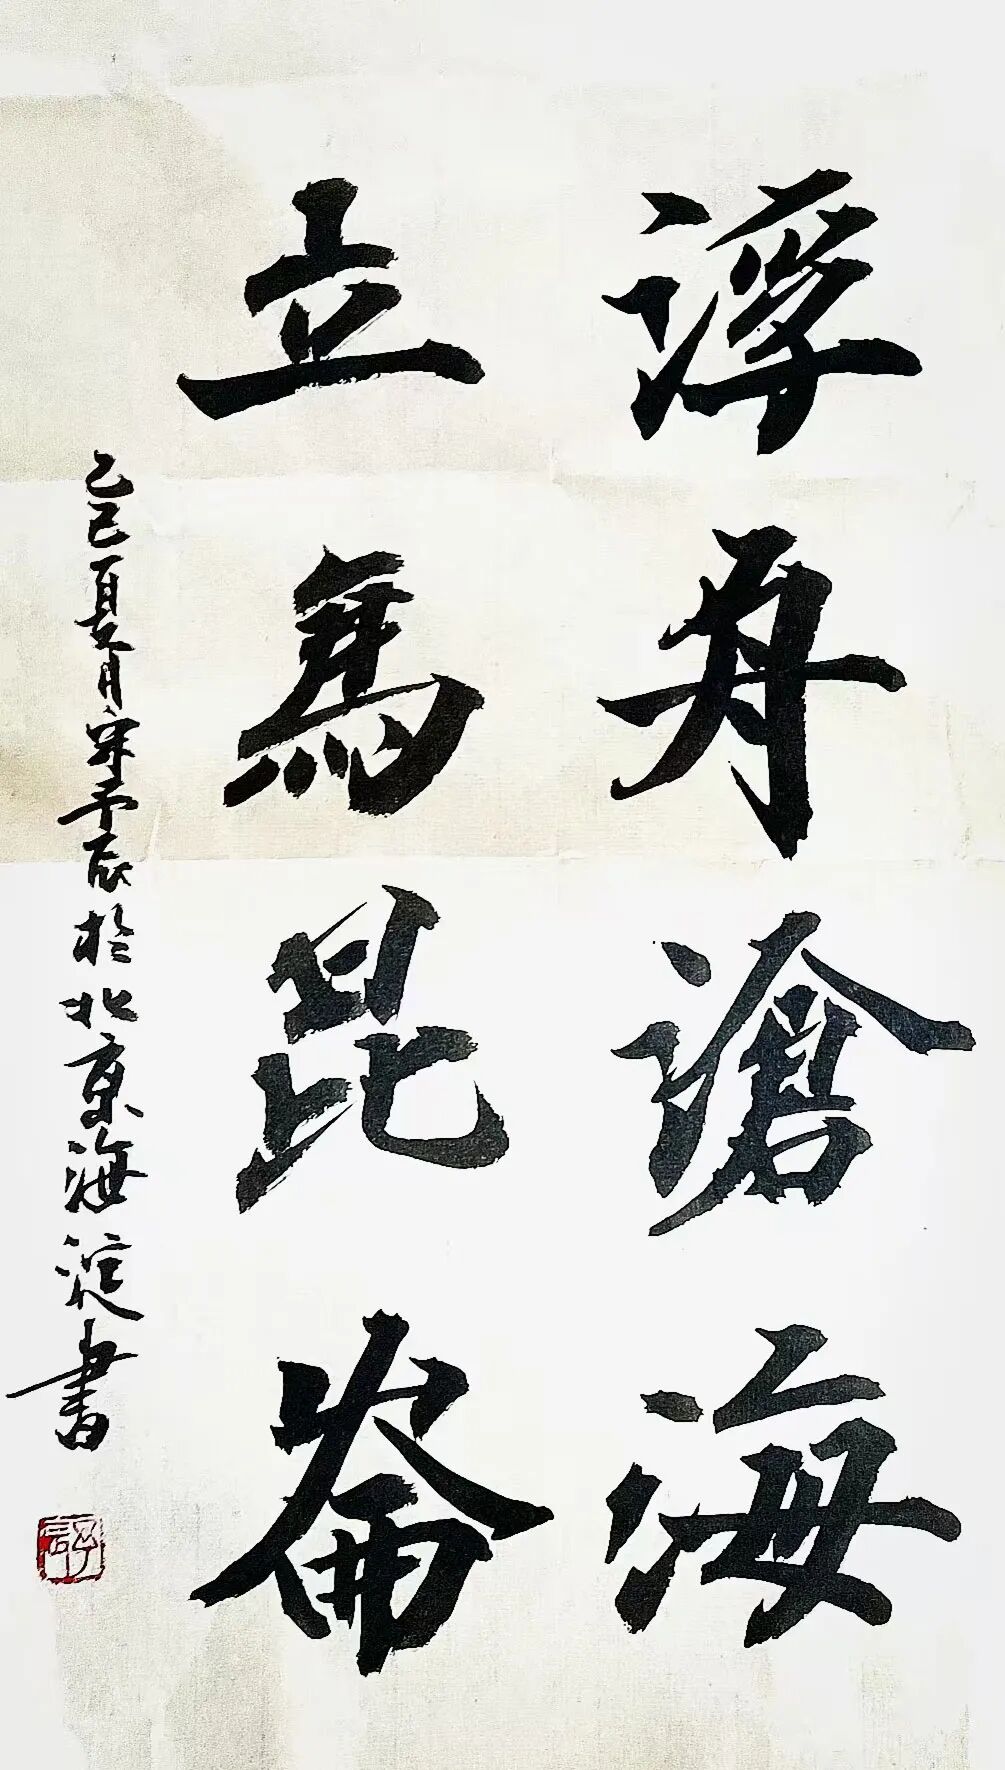 浮舟滄海
立馬崑崙
乙巳夏月宋予辰於北京海淀書